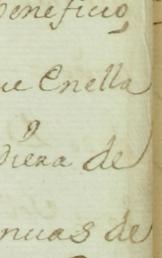 beneficio,
ue Enella
diera de
nuas de